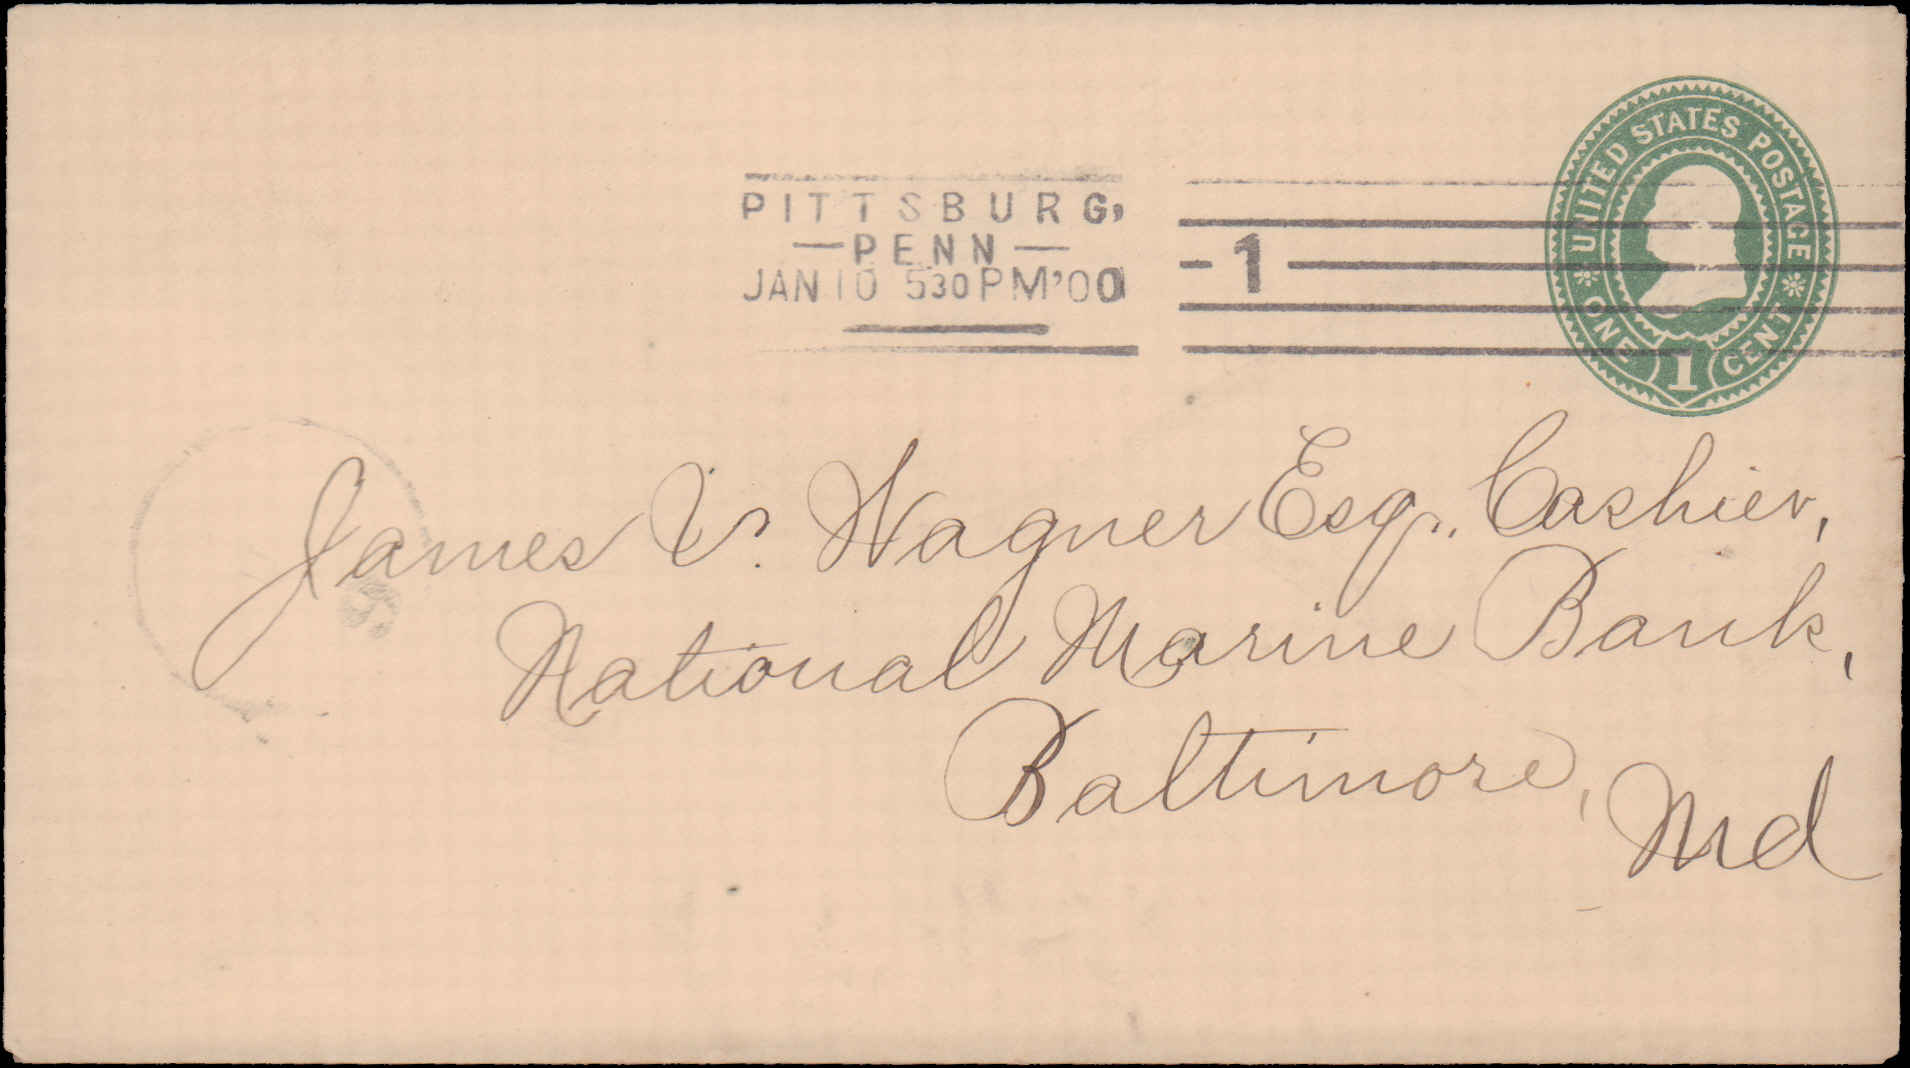 PITTSBURG,
—PENN—
JAN 10 530 PM '00
-1
UNITED STATES POSTAGE
ONE 1 CENT
James V. Wagner Esq., Cashier,
National Marine Bank,
Baltimore, Md